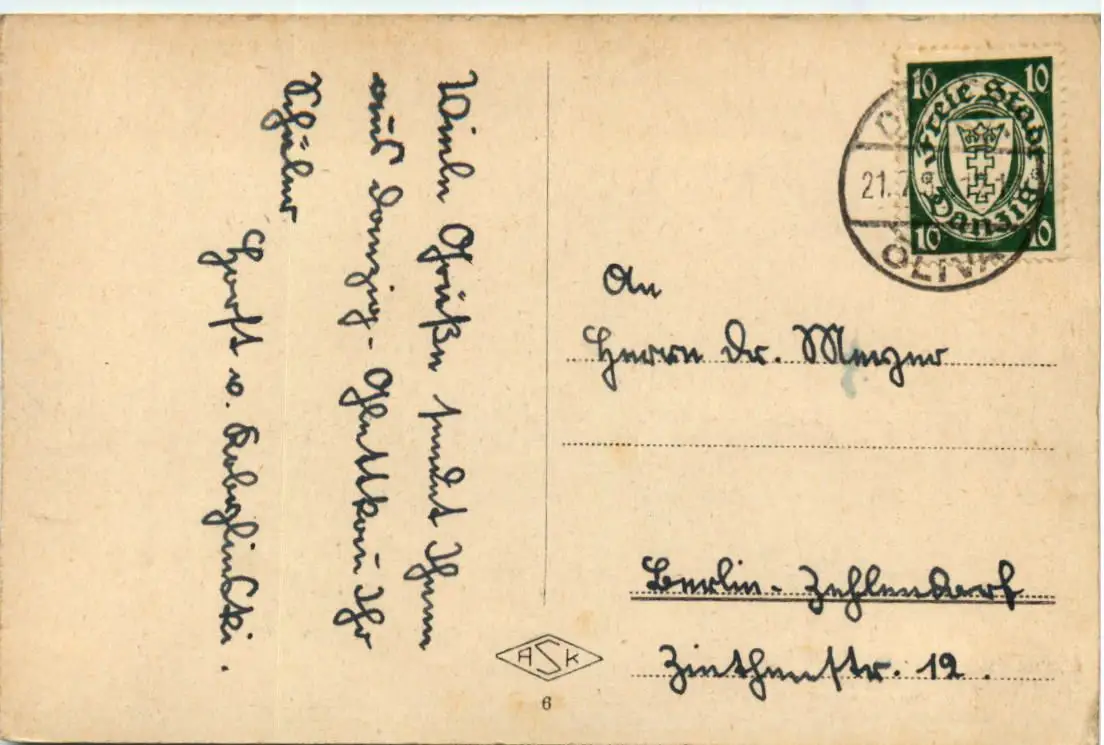 Viele Grüße sendet Ihnen
aus Danzig-Glettkau Ihr
Schüler
Horst v. Koboglinski.
An
Herrn Dr. Meyer
Berlin-Zehlendorf
12.
10 10
Freie Stadt
Danzig
10 10
21.7.
OLIVA
ASK
6